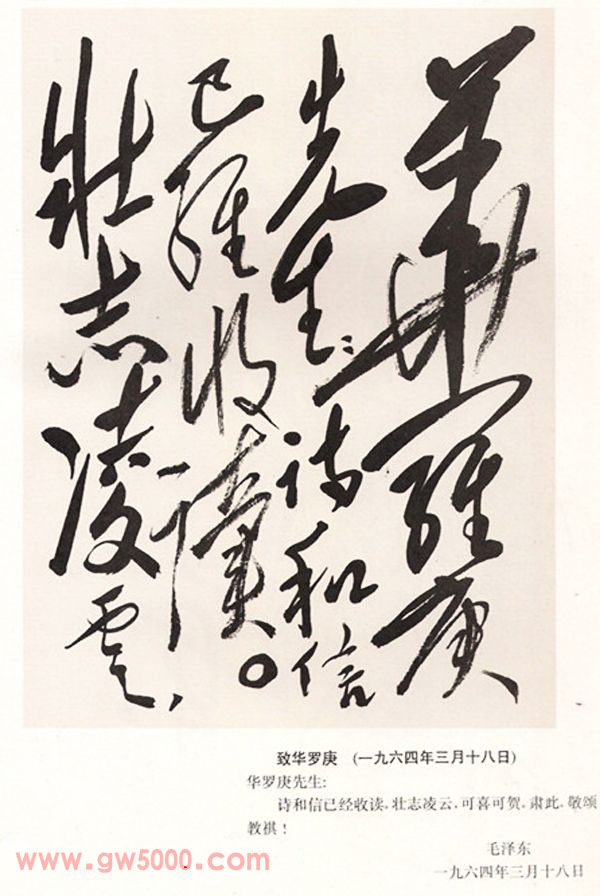 華羅庚
先生：诗和信
已經收讀。
壯志凌雲，
致华罗庚 (一九六四年三月十八日)
华罗庚先生:
诗和信已经收读。壮志凌云，可喜可贺。肃此，敬颂
教祺！
毛泽东
一九六四年三月十八日
www.gw5000.com